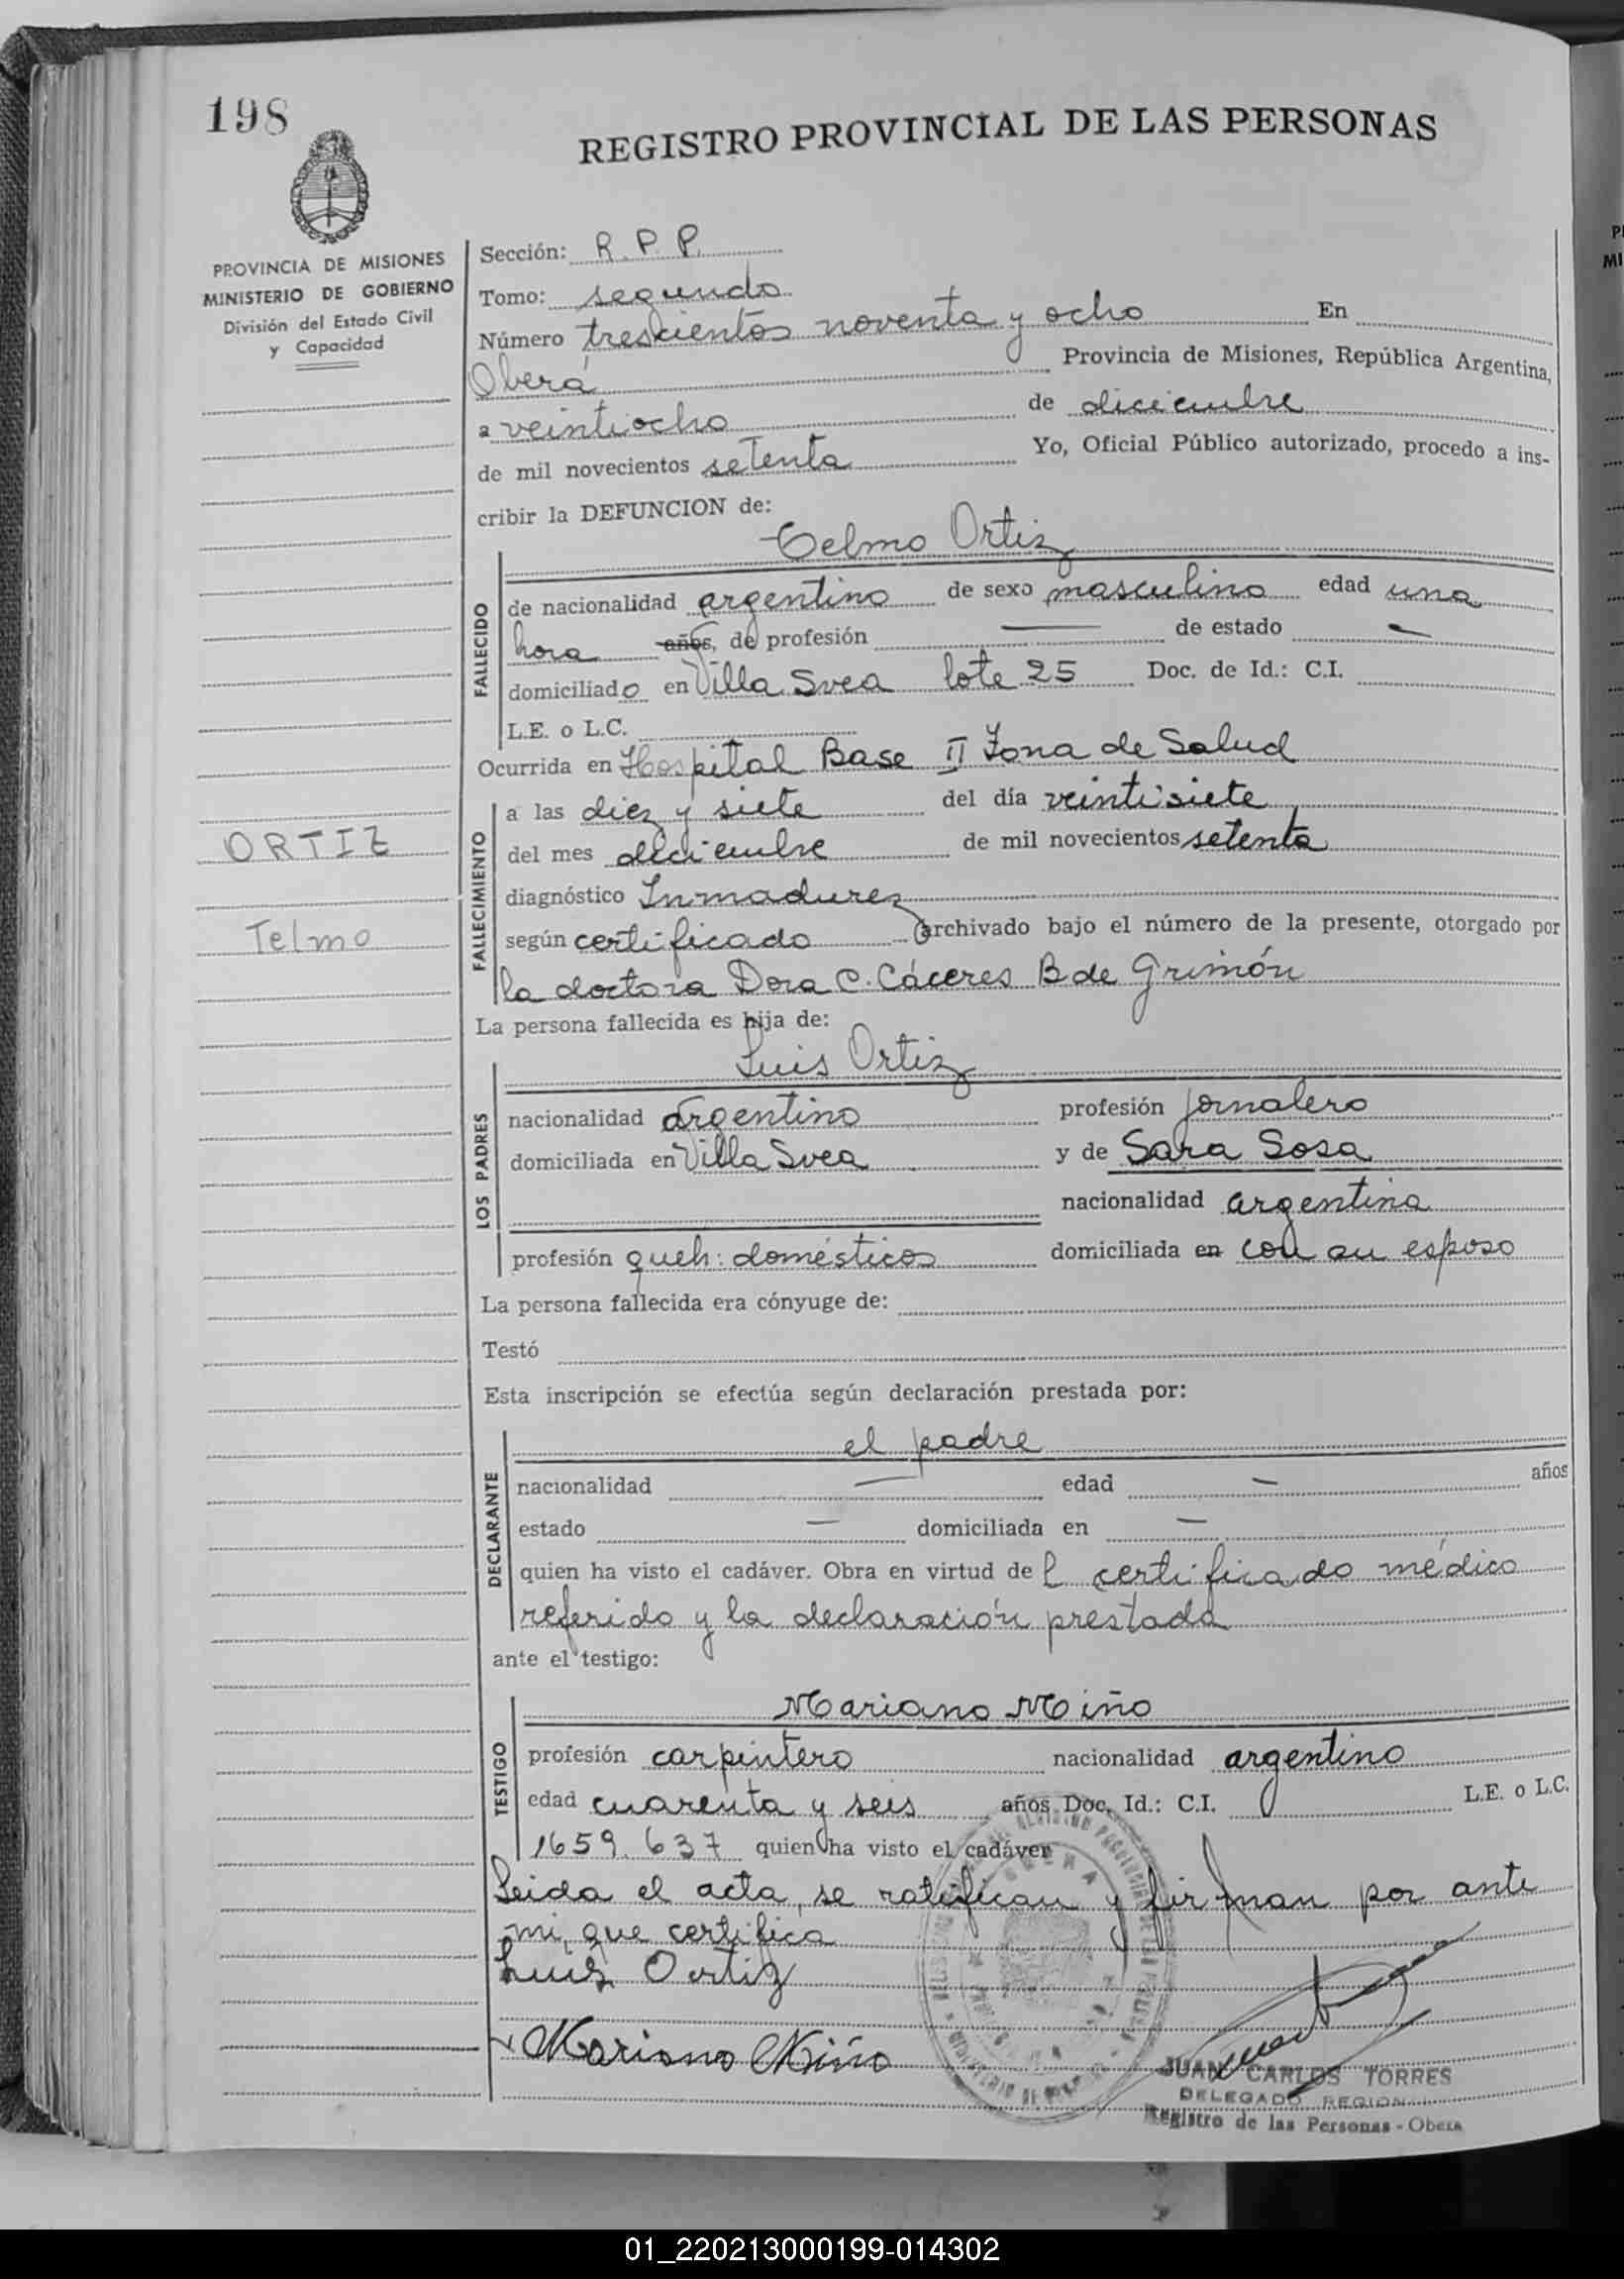 198
REGISTRO PROVINCIAL DE LAS PERSONAS
PROVINCIA DE MISIONES
MINISTERIO DE GOBIERNO
División del Estado Civil
y Capacidad
ORTIZ
Telmo
Sección: R. P. P.
Tomo: segundo
Número trescientos noventa y ocho En
Oberá Provincia de Misiones, República Argentina,
a veintiocho de diciembre
de mil novecientos setenta Yo, Oficial Público autorizado, procedo a ins-
cribir la DEFUNCION de:
Telmo Ortiz
FALLECIDO
de nacionalidad argentino de sexo masculino edad una
hora años, de profesión — de estado —
domiciliado en Villa Svea lote 25 Doc. de Id.: C.I.
L.E. o L.C.
Ocurrida en Hospital Base II Zona de Salud
FALLECIMIENTO
a las diez y siete del día veintisiete
del mes diciembre de mil novecientos setenta
diagnóstico Inmadurez
según certificado archivado bajo el número de la presente, otorgado por
la doctora Dora C. Cáceres B de Grimón
La persona fallecida es hija de:
Luis Ortiz
LOS PADRES
nacionalidad argentino profesión jornalero
domiciliada en Villa Svea y de Sara Sosa
nacionalidad argentina
profesión queh: domésticos domiciliada en con su esposo
La persona fallecida era cónyuge de:
Testó
Esta inscripción se efectúa según declaración prestada por:
el padre
DECLARANTE
nacionalidad — edad — años
estado — domiciliada en —
quien ha visto el cadáver. Obra en virtud de l certificado médico
referido y la declaración prestada
ante el testigo:
Mariano Miño
TESTIGO
profesión carpintero nacionalidad argentino
edad cuarenta y seis años Doc. Id.: C.I. L.E. o L.C.
1659.637 quien ha visto el cadáver
Leida el acta, se ratifican y firman por ante
mi, que certifica
Luis Ortiz
Mariano Miño
JUAN CARLOS TORRES
DELEGADO REGIONAL
Registro de las Personas - Oberá
01_220213000199-014302